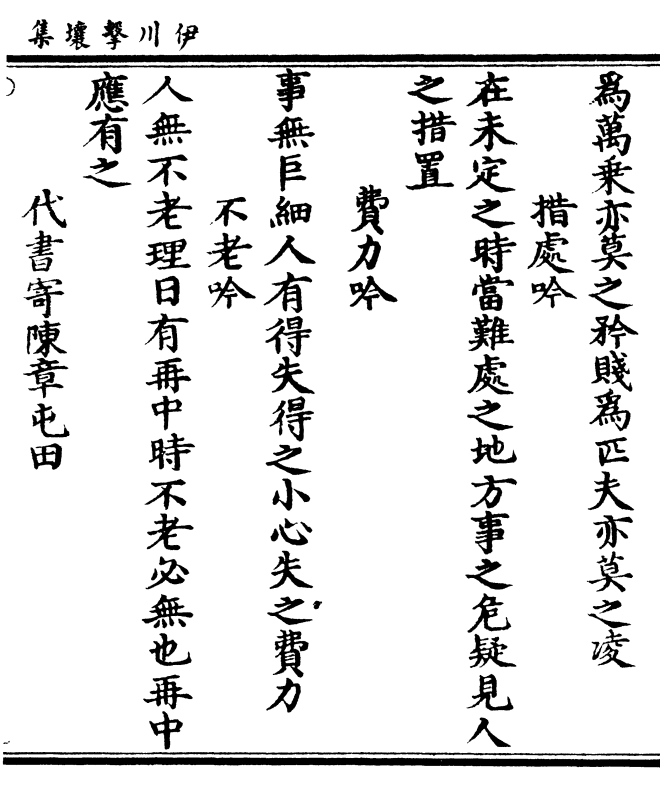 伊川擊壤集
爲萬乗亦莫之矜賤爲匹夫亦莫之凌
措處吟
在未定之時當難處之地方事之危疑見人
之措置
費力吟
事無巨細人有得失得之小心失之費力
不老吟
人無不老理日有再中時不老必無也再中
應有之
代書寄陳章屯田